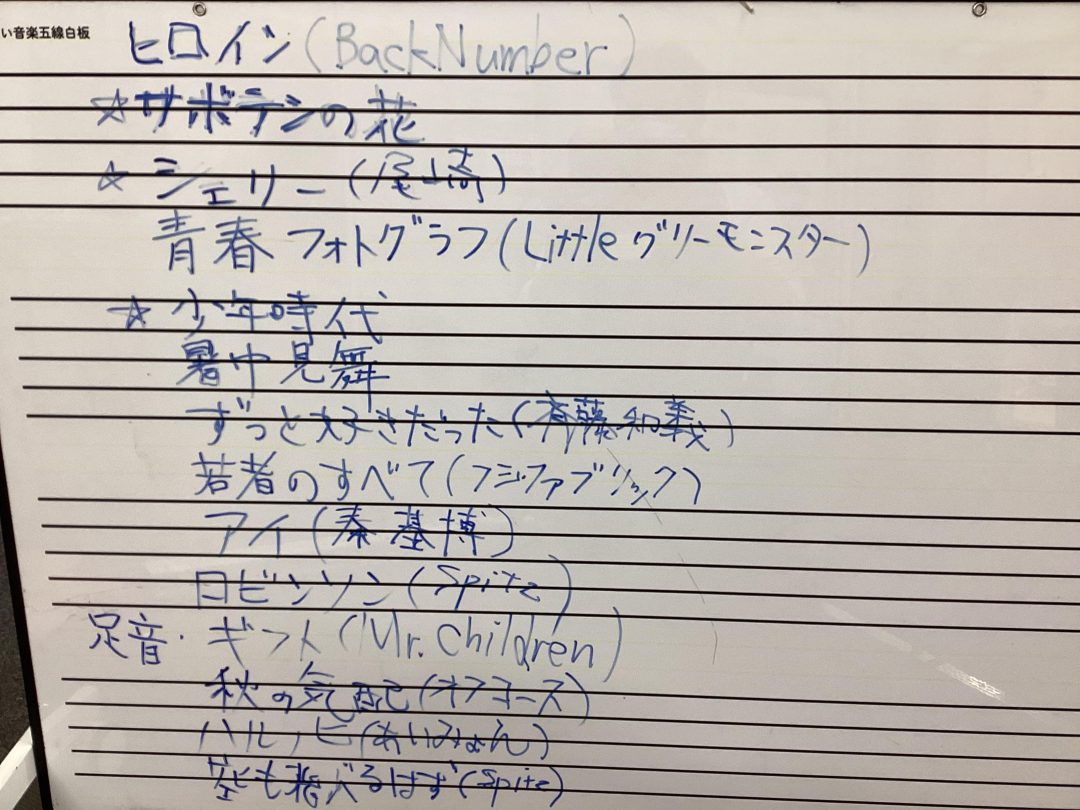 い音楽五線白板
ヒロイン(BackNumber)
☆サボテンの花
☆シェリー(尾崎)
青春フォトグラフ(Littleグリーモンスター)
☆少年時代
暑中見舞
ずっと好きだった(斉藤和義)
若者のすべて(フジファブリック)
アイ(秦基博)
ロビンソン(Spitz)
足音・ギフト(Mr.Children)
秋の気配(オフコース)
ハルノヒ(あいみょん)
空も飛べるはず(Spitz)